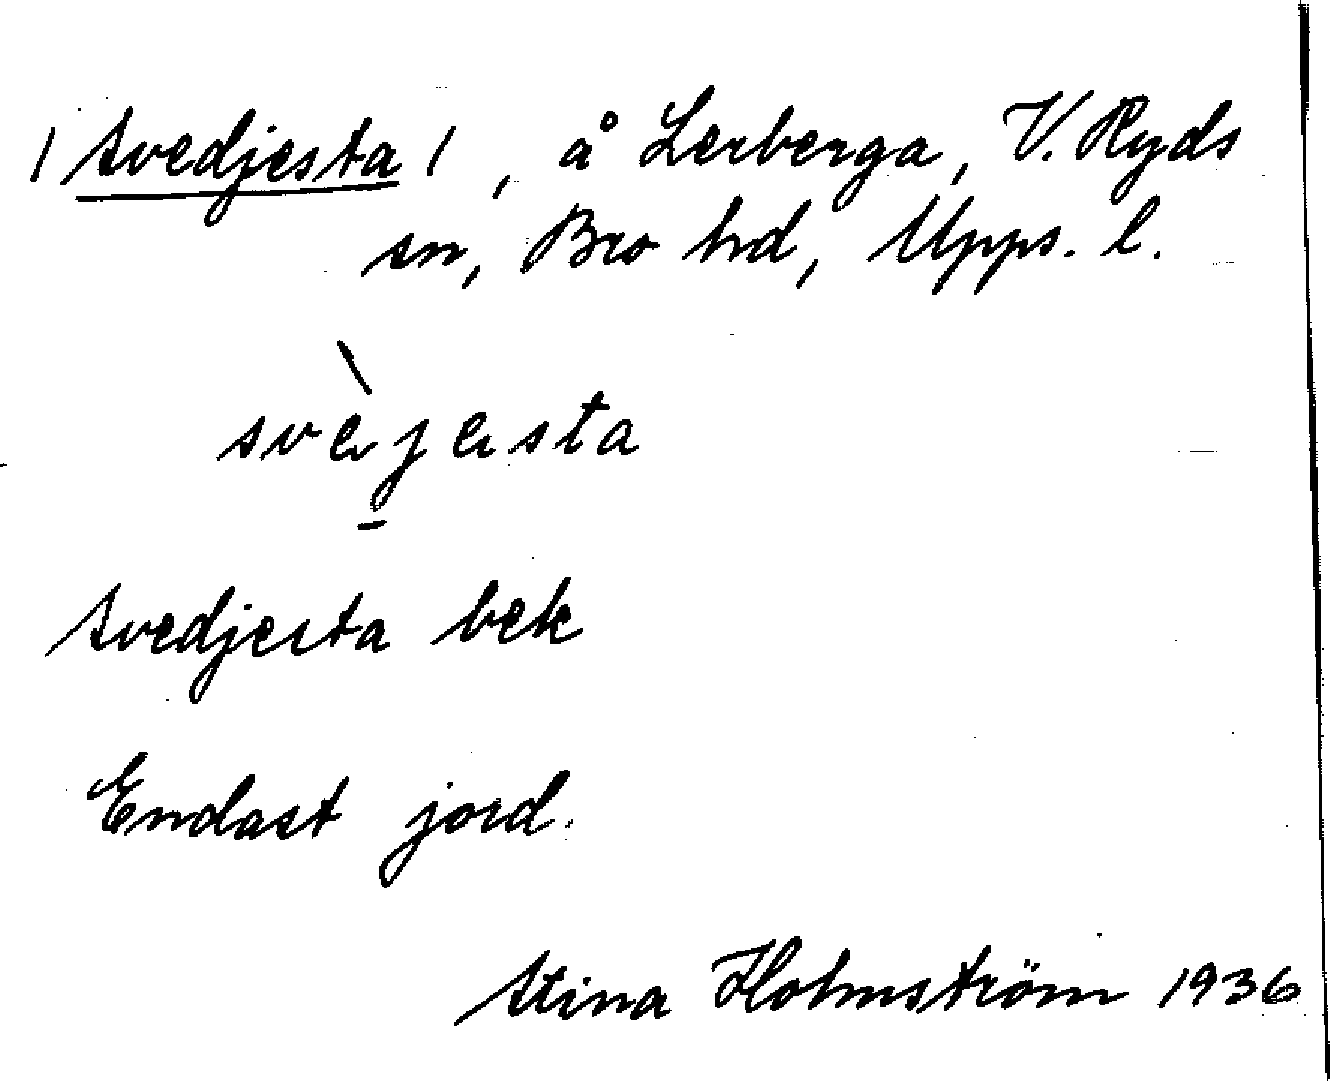 /Svedjesta/, å Lerberga, V. Ryds
sn, Bro hd, Upps. l.
svèjesta
Svedjesta bek
Endast jord.
Stina Holmström 1936